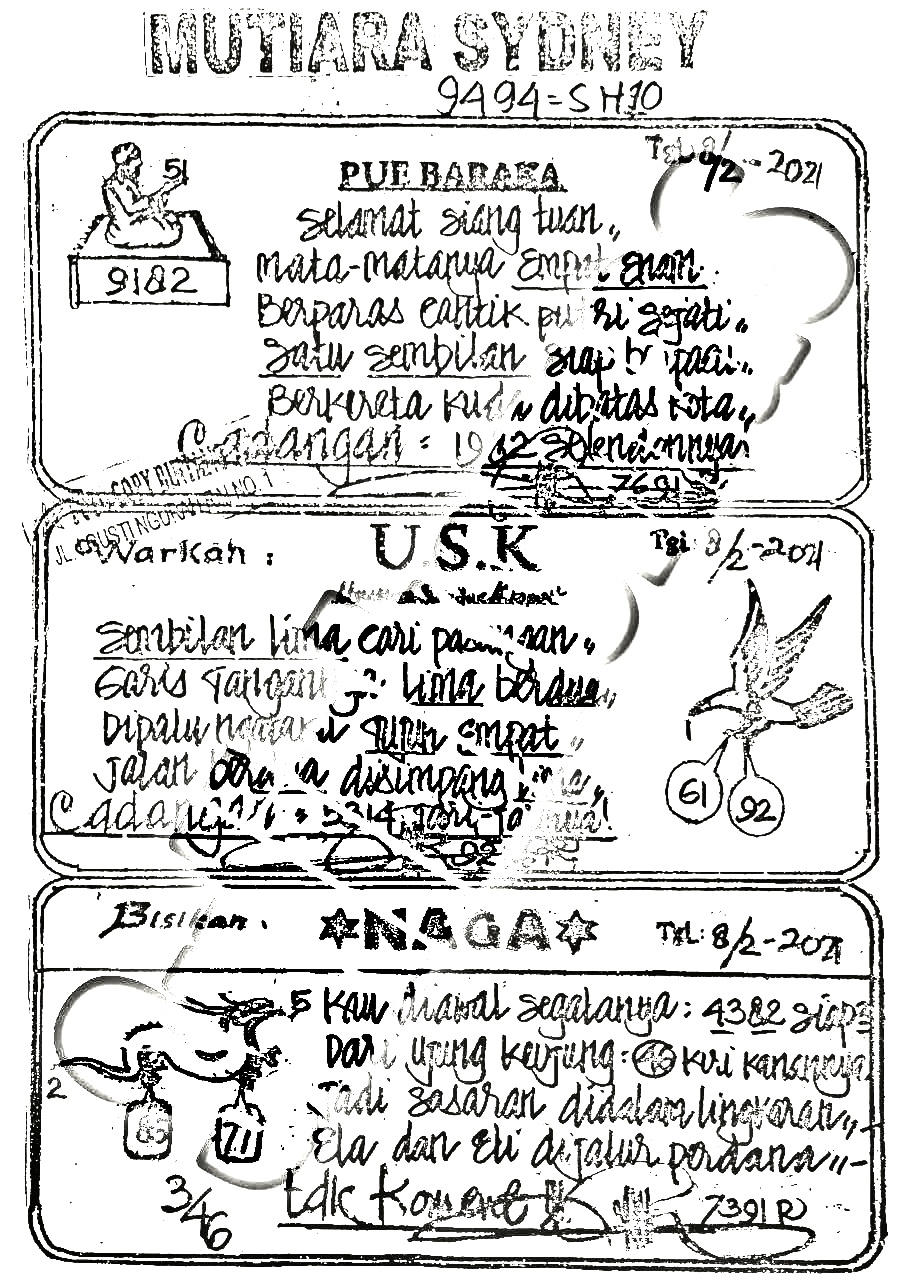 MUTIARA SYDNEY
9494=SH10
Tgl: 8/2-2021
51
9182
PUE BARAKA
Selamat siang tuan,,
Mata-matanya empat enam.
Berparas cantik putri sejati,,
Satu sembilan siap
Berkereta kuda dibatas kota,,
Cadangan =
7691
COPY
JL. NO. 1
Warkah :
U.S.K
Tgl: 8/2-2021
Sembilan lima cari pasangan,,
Garis tangan lima berdua,,
Dipalu tujuh empat,,
Jalan disimpang lima,,
Cadangan = 5314 jari-jarinya!
92
61
92
Bisikan :
NAGA
Tgl: 8/2-2021
5
Kau diawal segalanya : 4382 siaps
Dari ujung keujung : 46 kiri kanannya
Jadi sasaran didalam lingkaran,,-
Ela dan Eli dijalur perdana,,-
2
85
71
3/46
tdk
7391 R